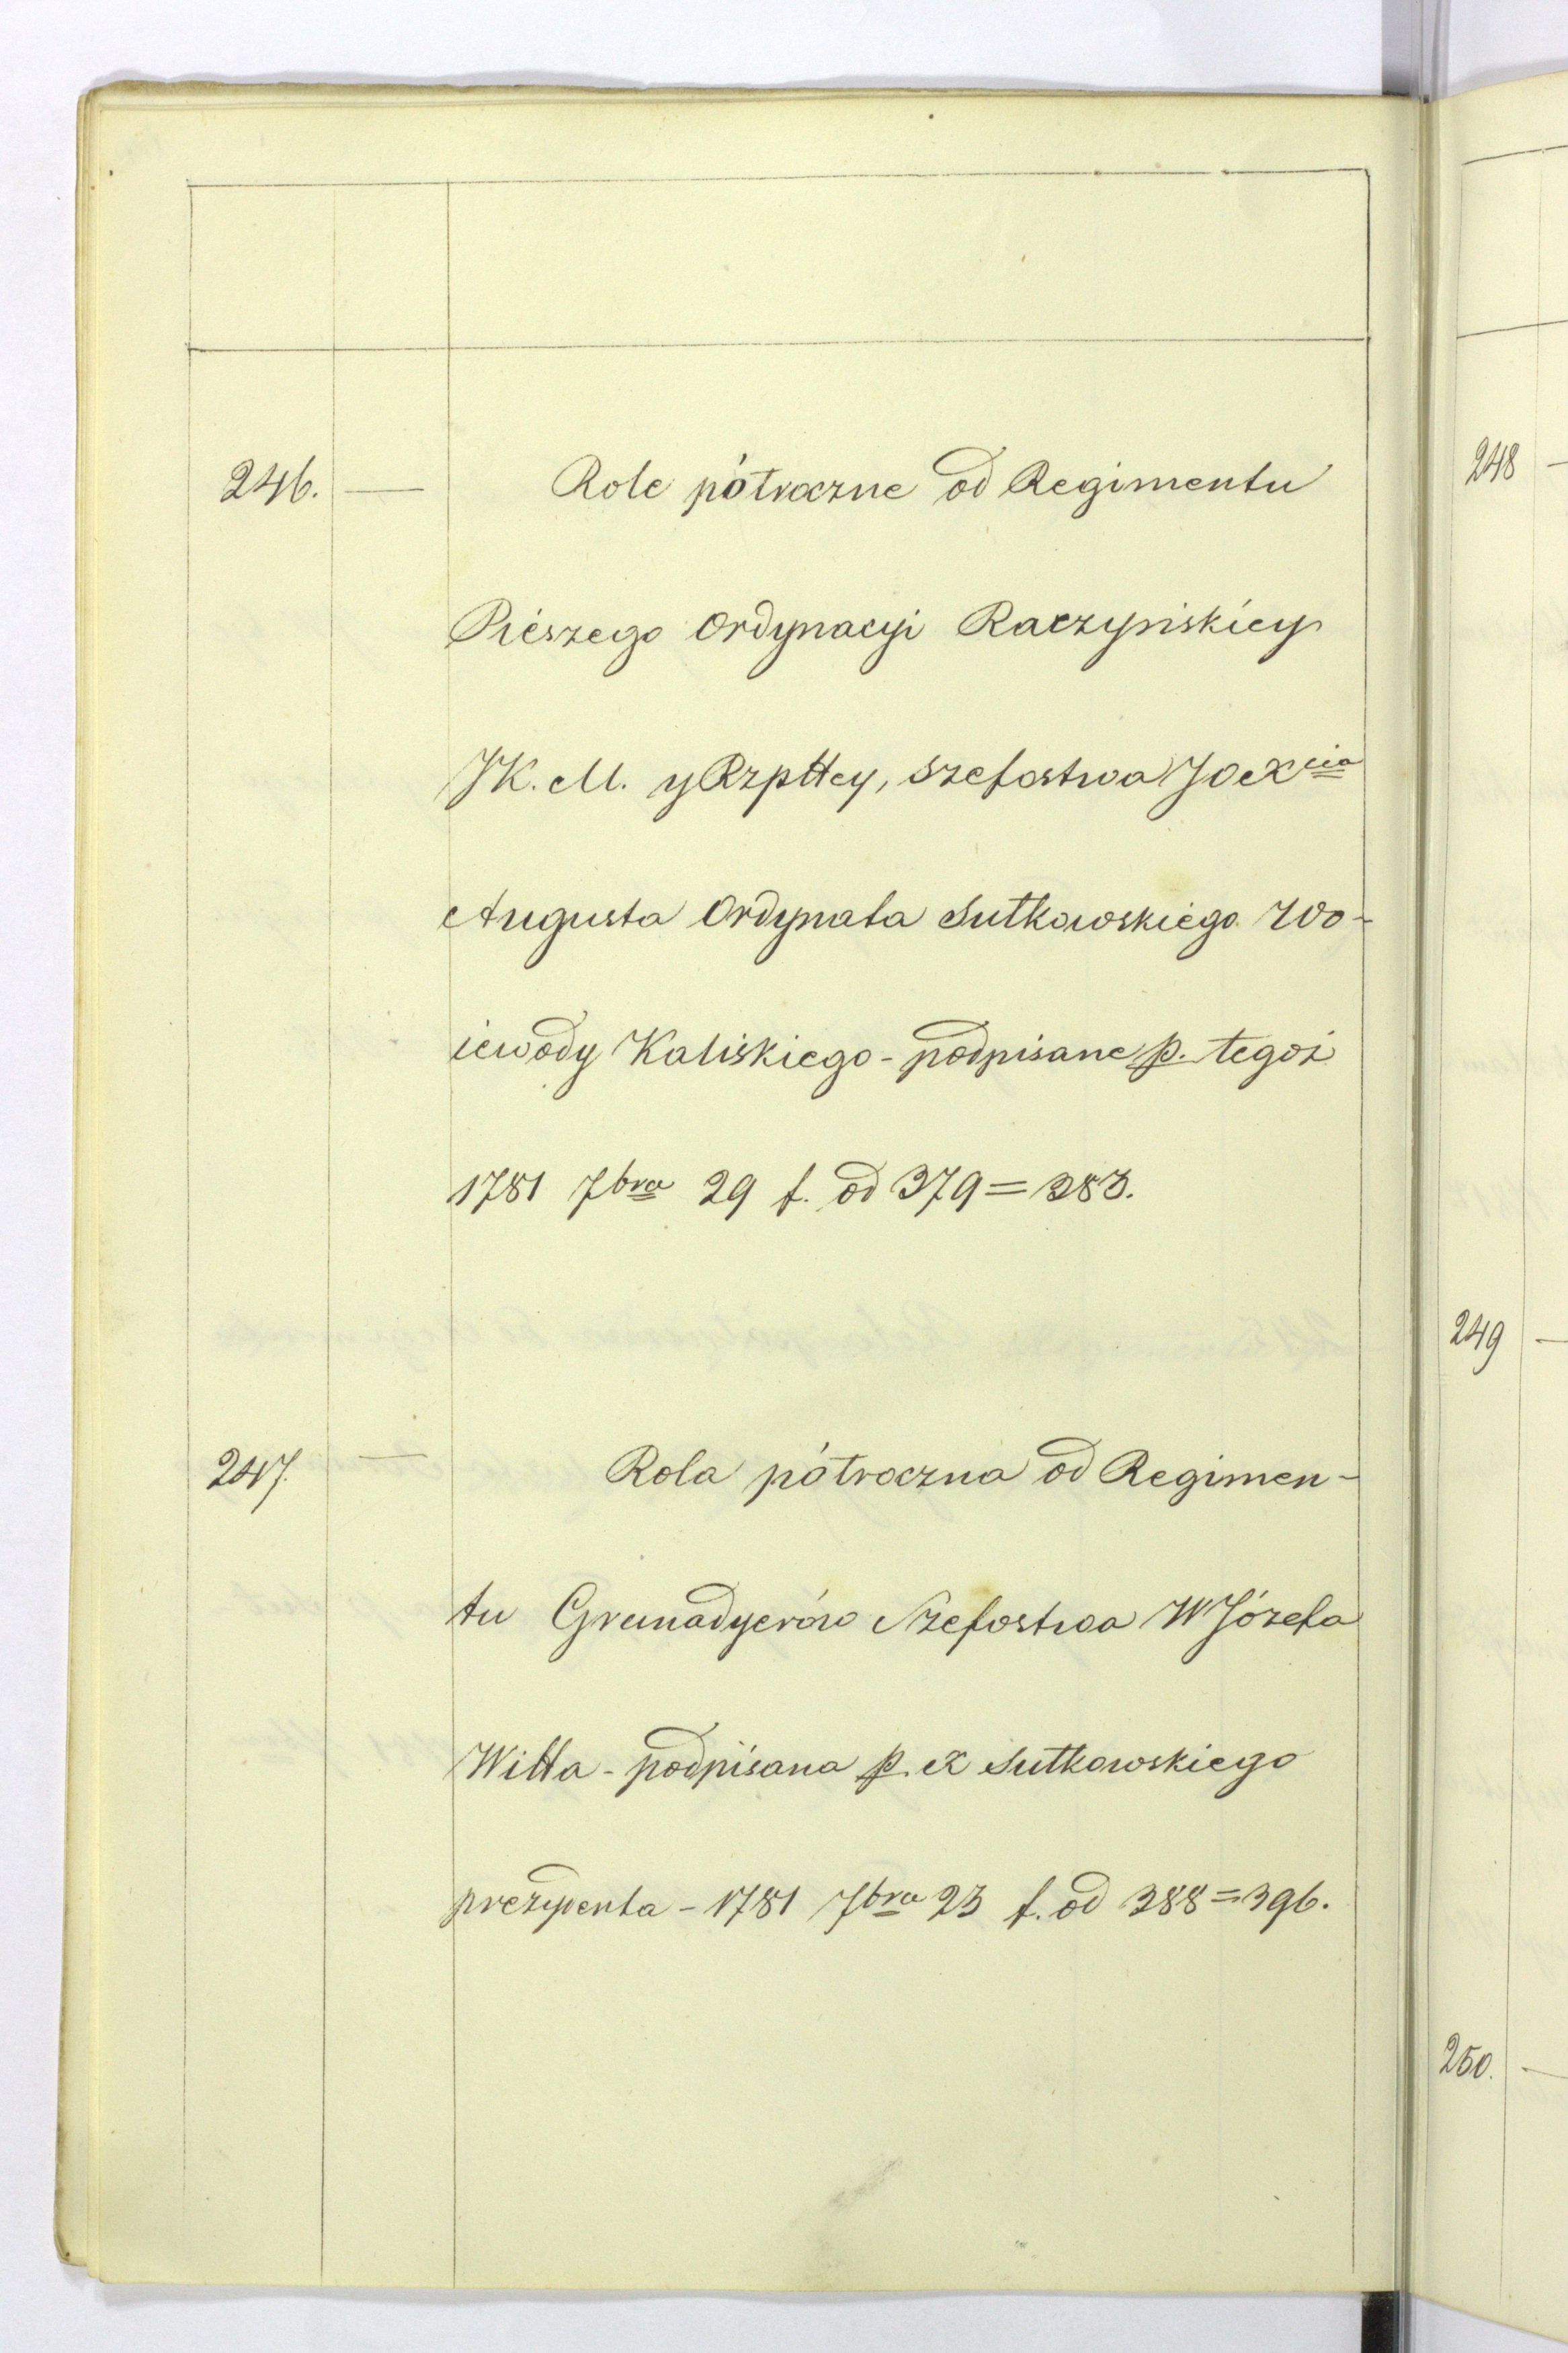 246. — Role półroczne od Regimentu
Piészego Ordynacyi Raczyńskiey
JK. M. y Rzpttey, Szefostwa JOeXcia
Augusta Ordynata Sułkowskiégo Wo-
iewody Kaliskiego - podpisane p. tegoż
1781 7bra 29 f. od 379 = 383.
247. — Rola półroczna od Regimen-
tu Grenadyerów Szefostwa W Józefa
Witta - podpisana p. X Sułkowskiego
prezydenta - 1781 7bra 23 f. od 388 = 396.
248 —
249 —
250. —